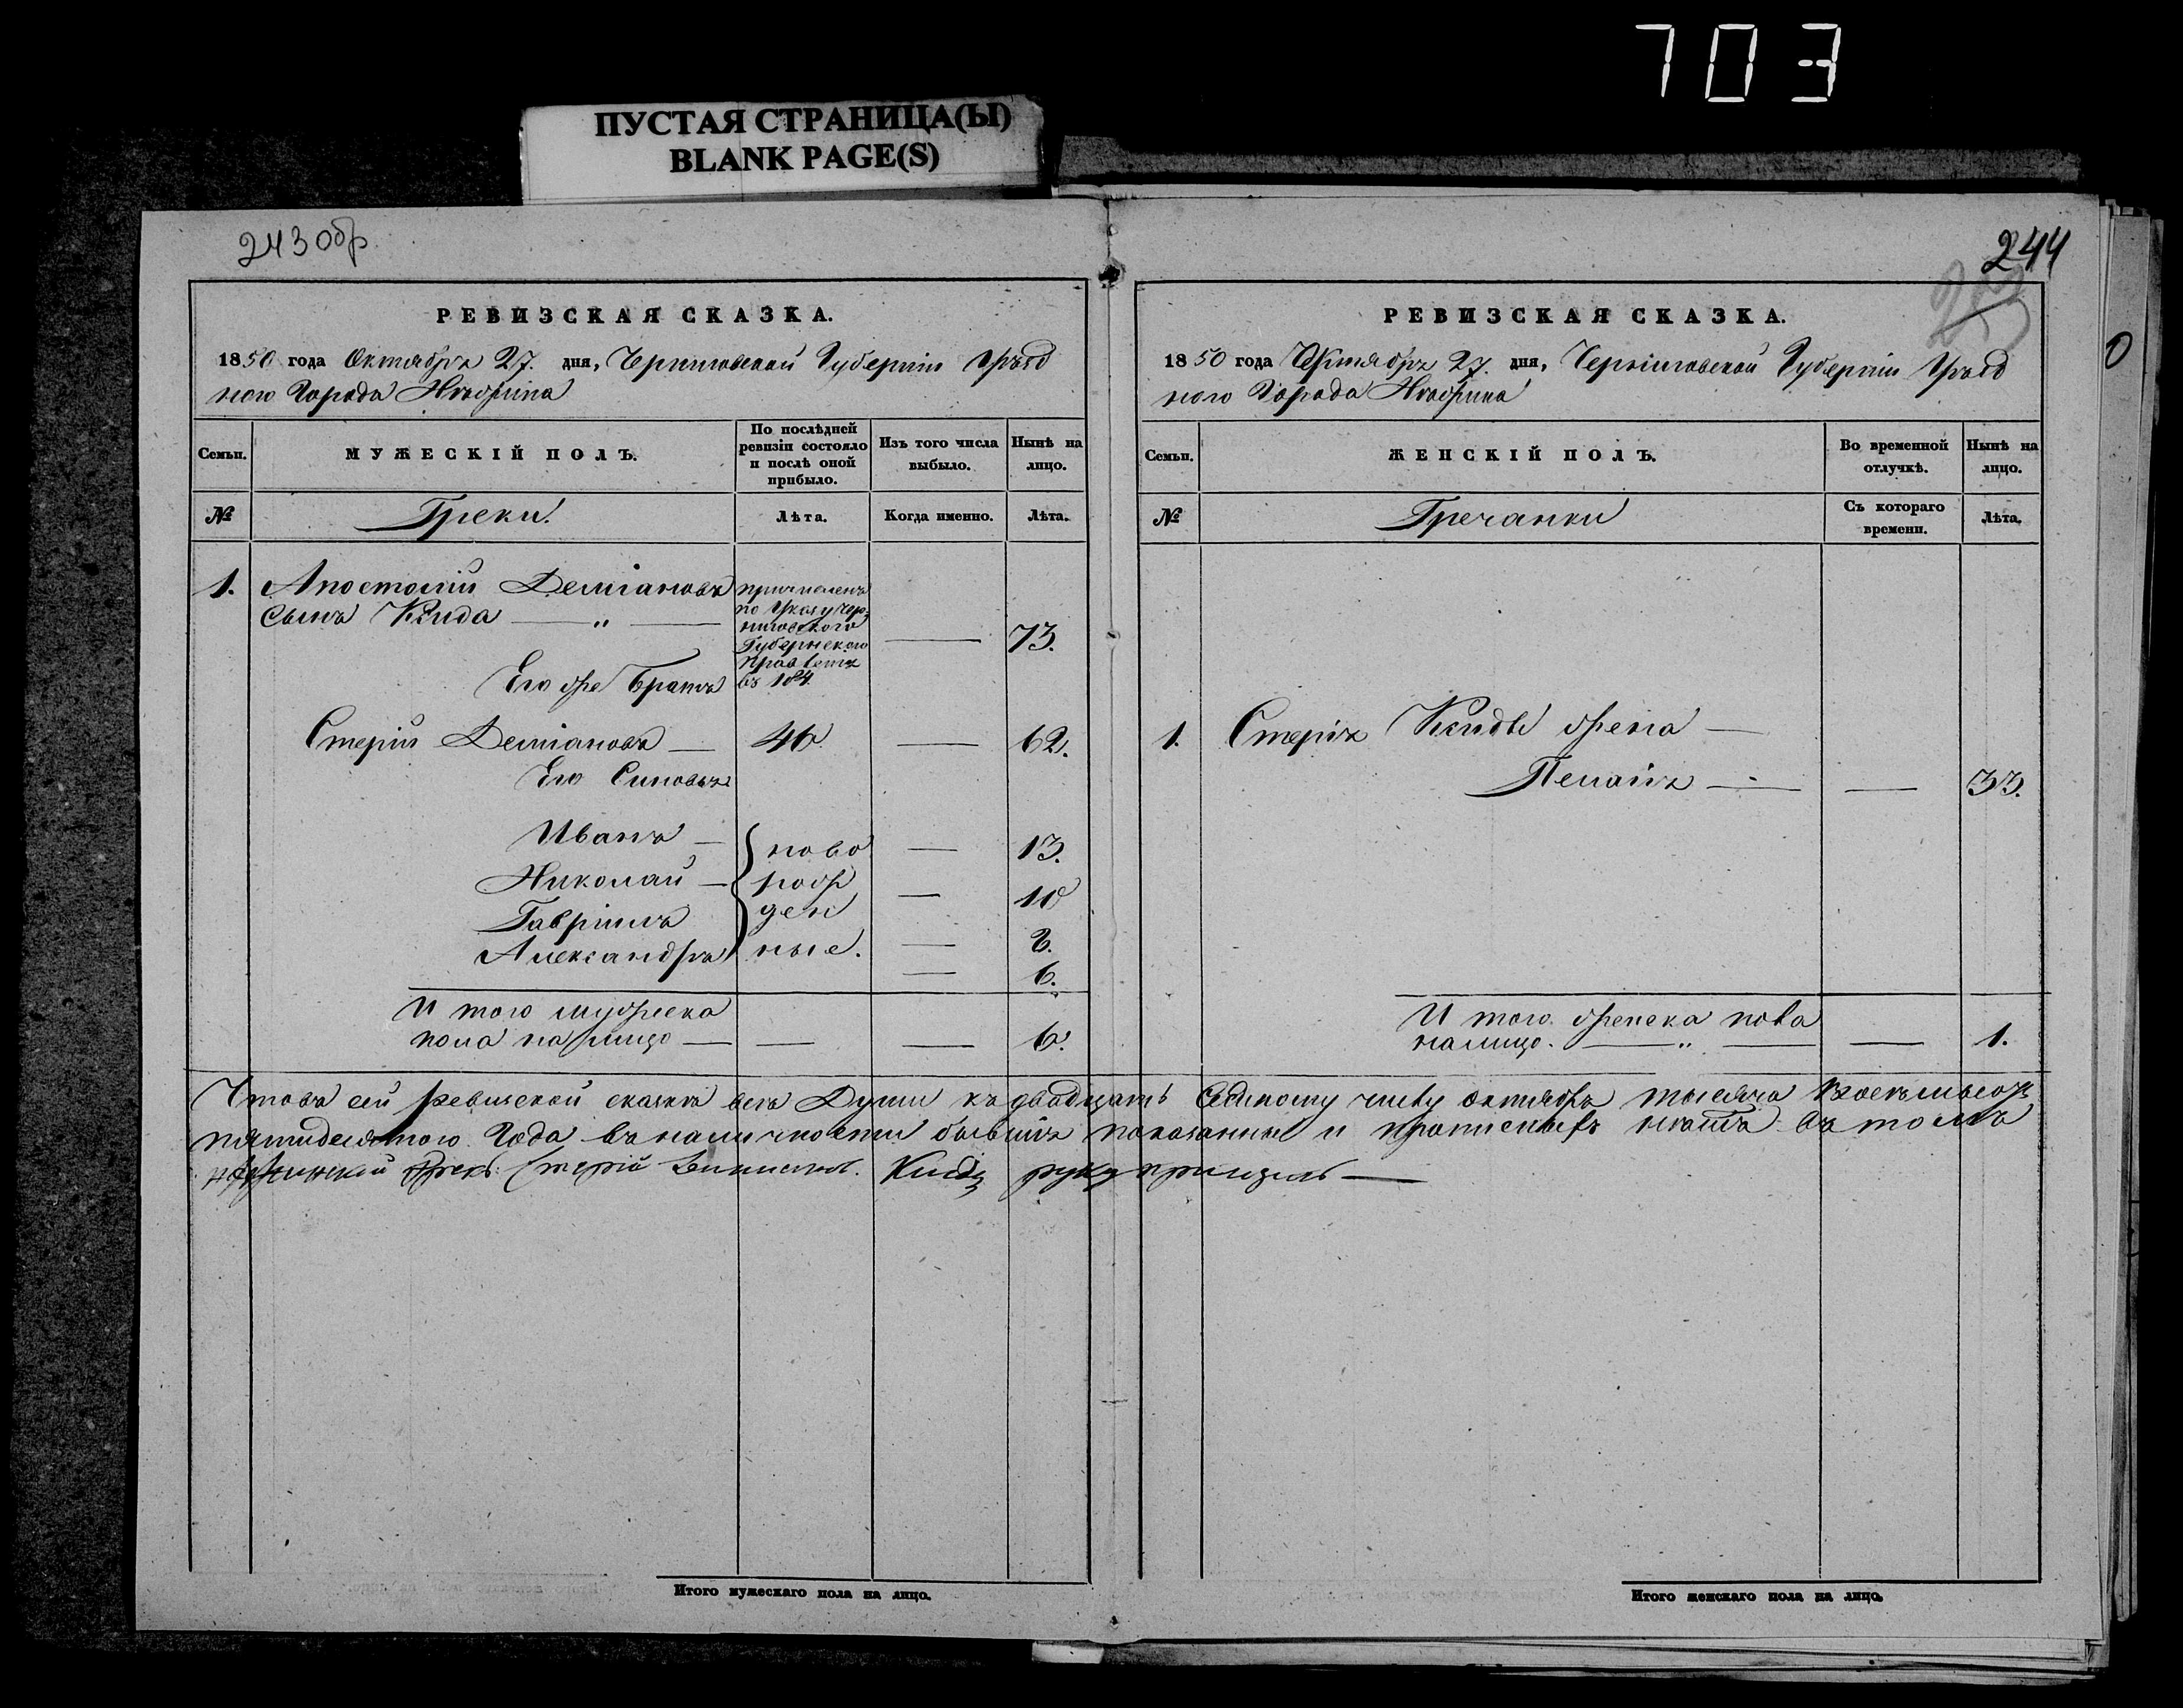 703
ПУСТАЯ СТРАНИЦА(Ы)
BLANK PAGE(S)
243 об
РЕВИЗСКАЯ СКАЗКА.
1850 года Октября 27. дня, Черниговской Губерніи Уѣзд
ного Города Нѣжина
Семьи.
МУЖЕСКІЙ ПОЛЪ.
По послѣдней ревизіи состояло и послѣ оной прибыло.
Изъ того числа выбыло.
Нынѣ на лицо.
№
Греки.
Лѣта.
Когда именно.
Лѣта.
1. Апостолій Деміановъ
сынъ Кида — „ — — 73.
причисленъ
по Указу Чер-
ниговского
Губернского
Правленія
въ 184
Его же Братъ
Стерій Деміановъ — 46. — 62.
Его Синовья
Иванъ — ново — 13.
Николай — рож — 10
Гавріилъ ден — 8.
Александръ ные. — 6.
И того мужеска
пола на лицо — — — 6.
244
РЕВИЗСКАЯ СКАЗКА.
1850 года Октября 27. дня, Черниговской Губерніи Уѣзд
ного Города Нѣжина
Семьи.
ЖЕНСКІЙ ПОЛЪ.
Во временной отлучкѣ.
Нынѣ на лицо.
№
Гречанки
Съ котораго времени.
Лѣта.
1. Стерія Киды жена —
Пелагія — — 33.
И того женска пола
налицо. — „ — — 1.
Что въ сей ревизской сказкѣ всѣ Души къ двадцать Седмому числу октября тысяча Восемьсотъ
пятидесятого Года въ наличности бывшіе показанны и прописныхъ нѣтъ въ томъ
нѣжинскій Грекъ Стерій Кида руку приложилъ —
Итого мужескаго пола на лицо.
Итого женскаго пола на лицо.
0